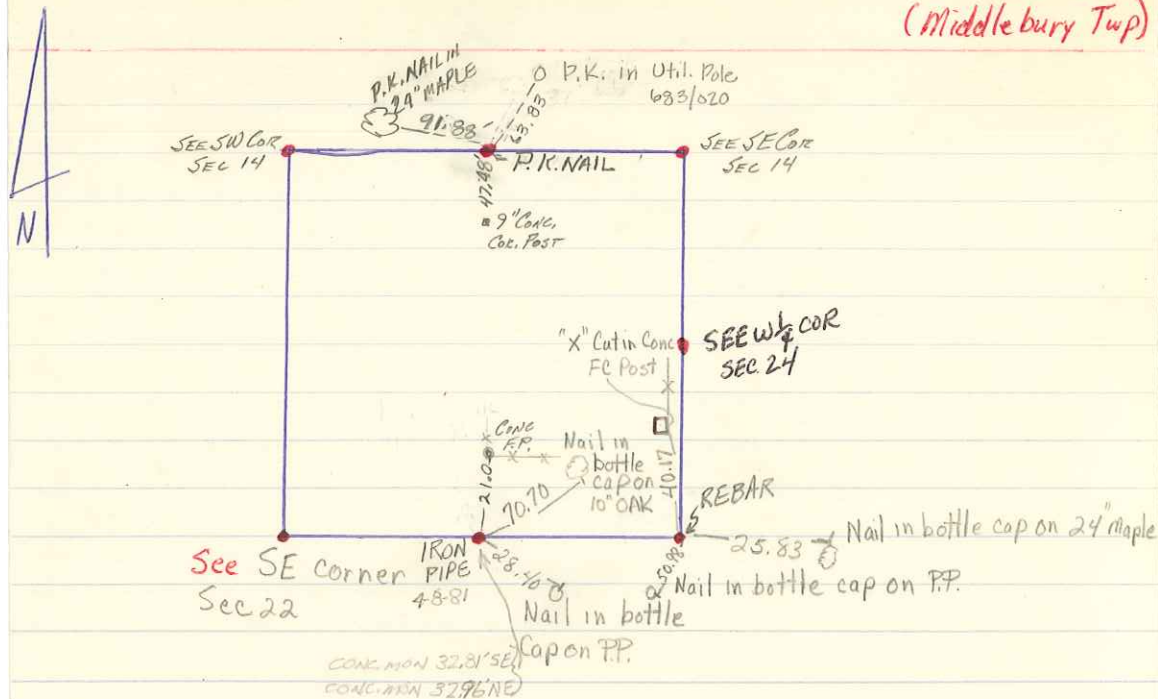 (Middlebury Twp)
P.K. NAIL IN
24" MAPLE
P.K. in Util. Pole
683/020
91.88'
63.83
SEE SW COR
SEC 14
SEE SE COR
SEC 14
P.K. NAIL
47.48'
9" CONC.
COR. POST
N
"X" Cut in Conc
FC Post
SEE W 1/4 COR
SEC. 24
CONC
F.P.
Nail in
bottle
cap on
10" OAK
21.0
70.70
40.17
REBAR
25.83
Nail in bottle cap on 24" maple
See SE corner
Sec 22
IRON
PIPE
4-8-81
28.40
50.98
Nail in bottle cap on P.P.
Nail in bottle
Cap on P.P.
CONC. MON 32.81' SE
CONC. MON 32.96' NE